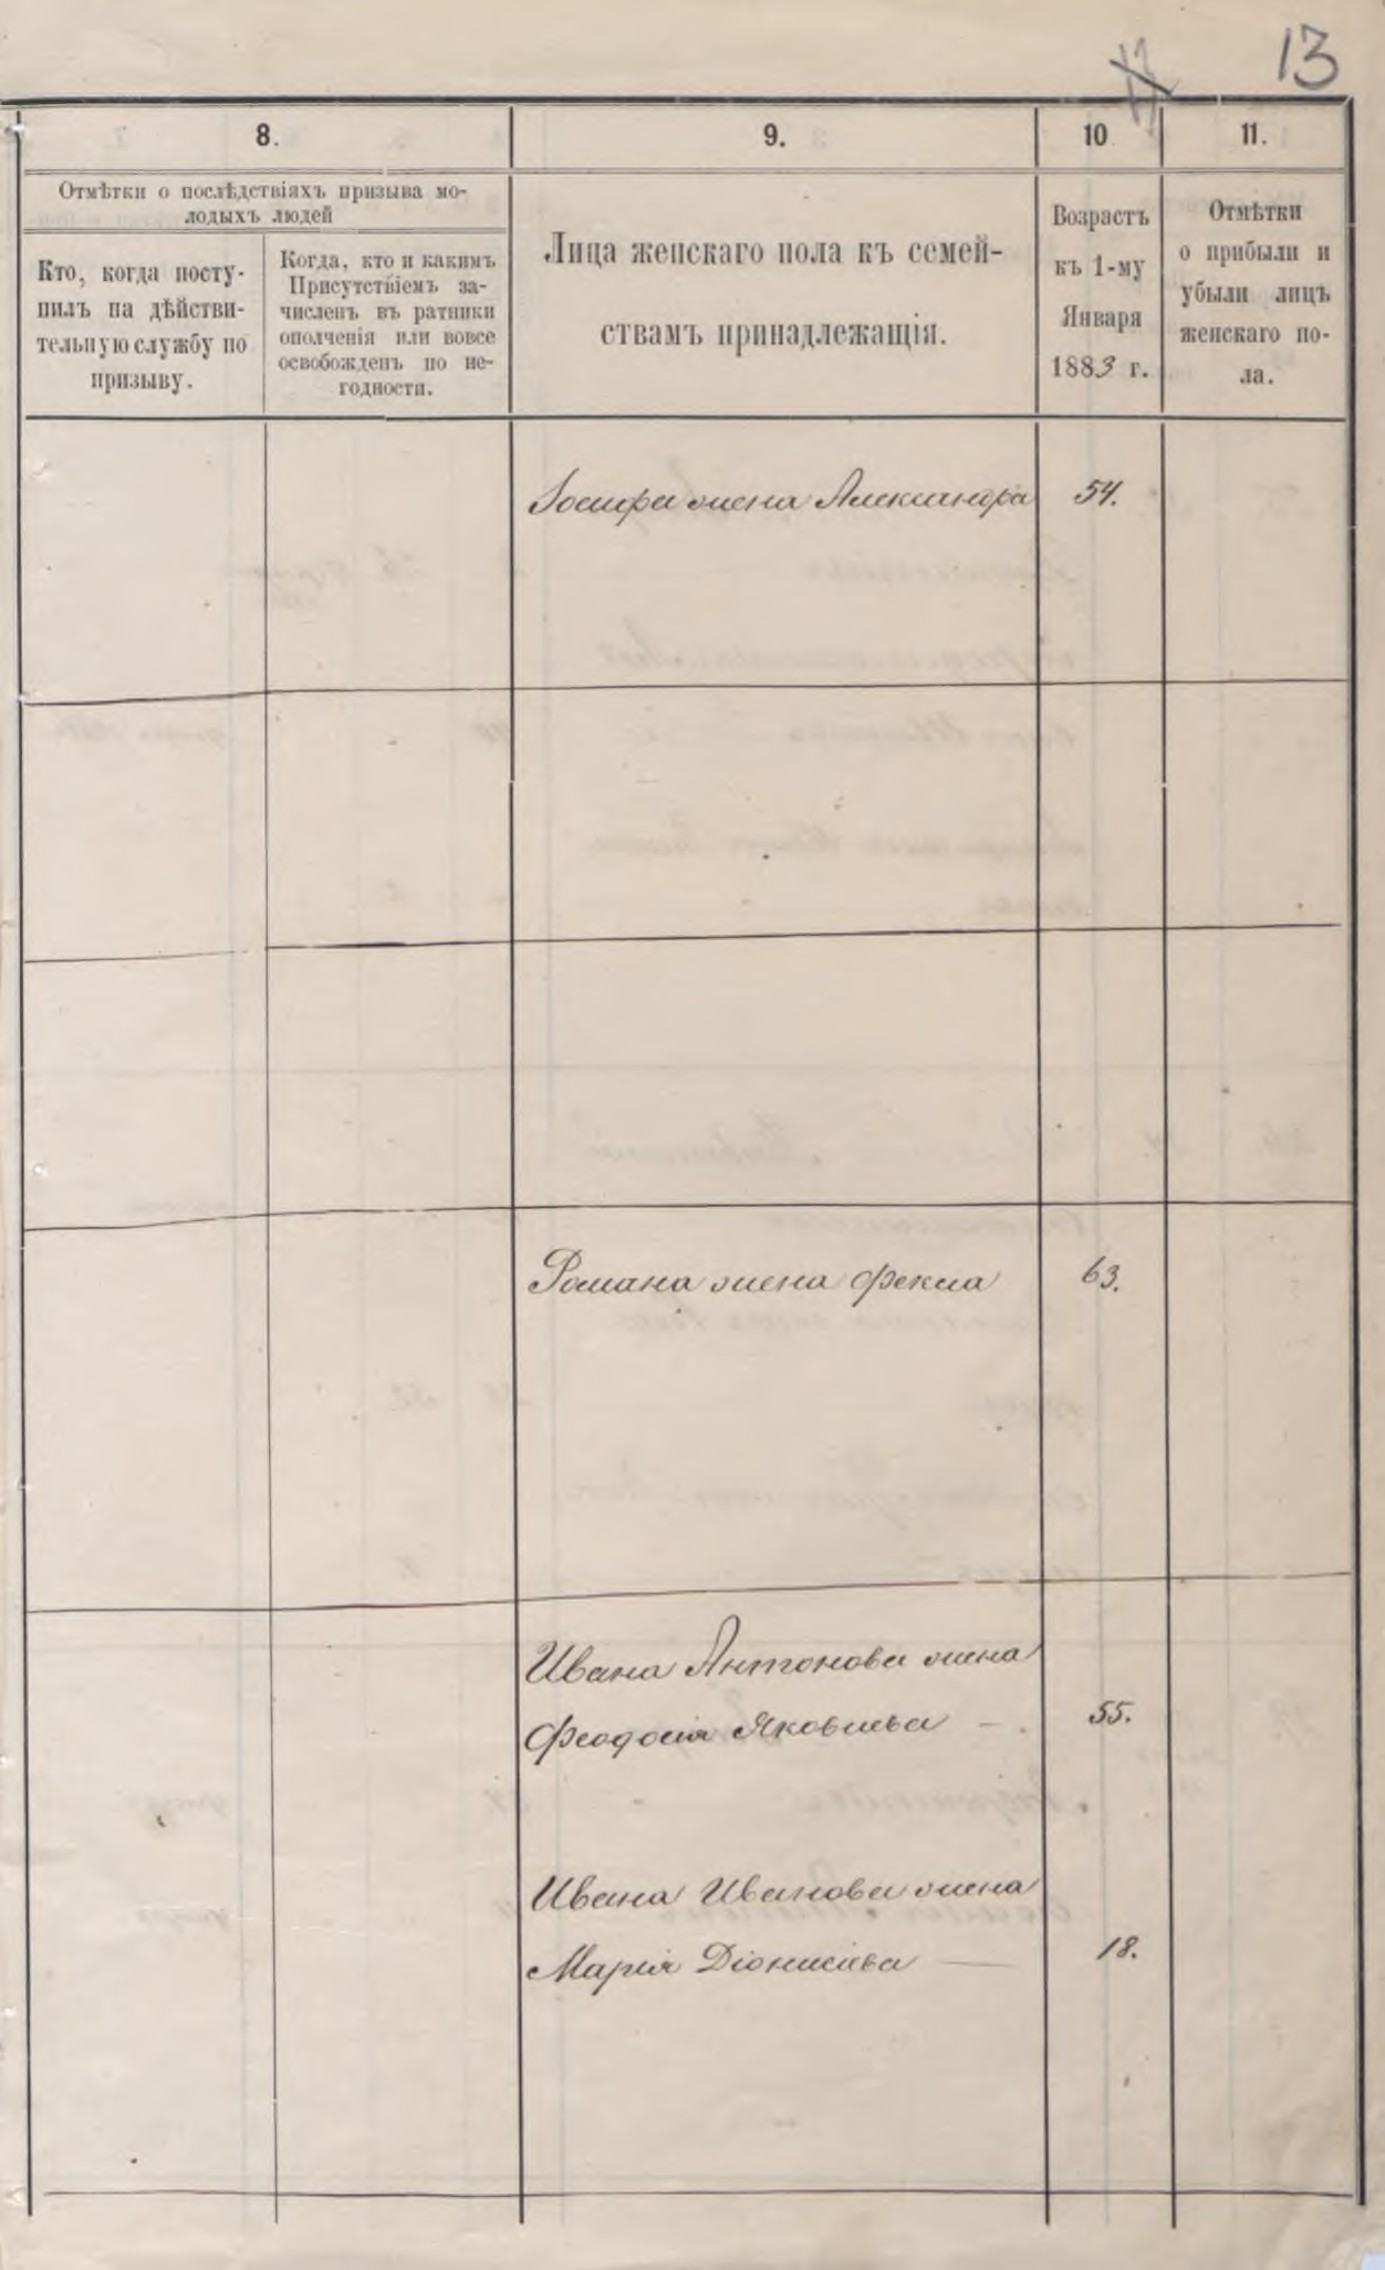 13
8.
9.
10
11.
Отмѣтки о послѣдствіяхъ призыва мо-
лодыхъ людей
Кто, когда посту-
пилъ на дѣйстви-
тельную службу по
призыву.
Когда, кто и какимъ
Присутствіемъ за-
численъ въ ратники
ополченія или вовсе
освобожденъ по не-
годности.
Лица женскаго пола къ семей-
ствамъ принадлежащія.
Возрастъ
къ 1-му
Января
1883 г.
Отмѣтки
о прибыли и
убыли лицъ
женскаго по-
ла.
Іосифа жена Александра 54.
Романа жена Фекла 63.
Ивана Антонова жена
Феодосія Яковлева — 55.
Ивана Иванова жена
Марія Діонисіева — 18.